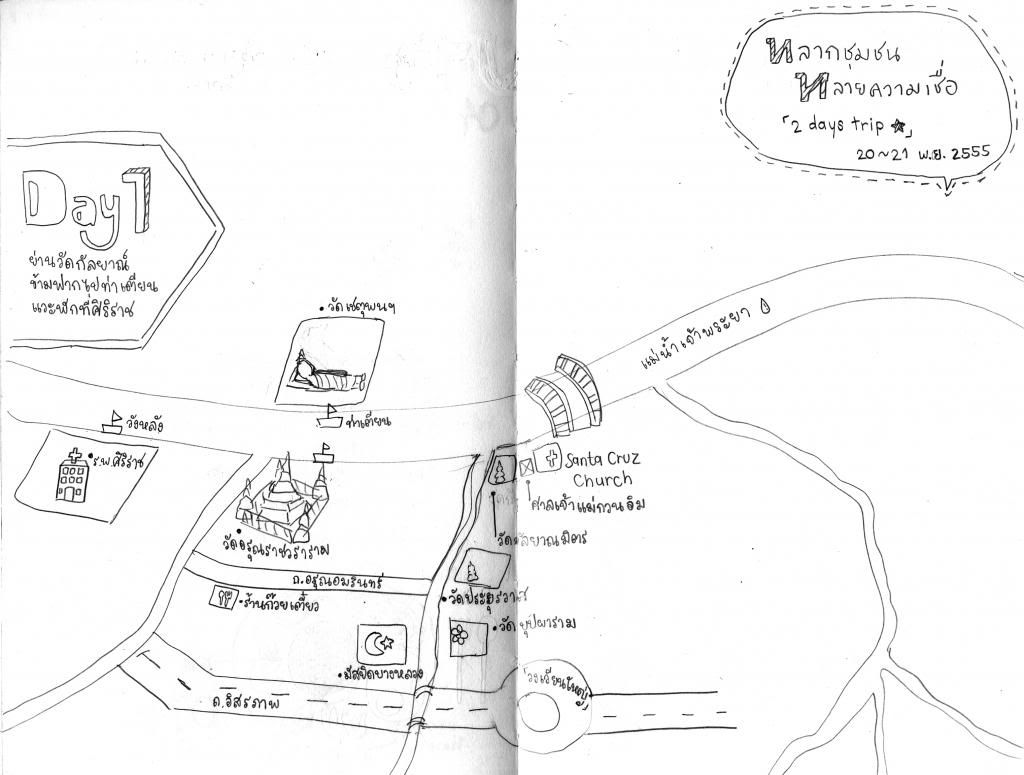 หลากชุมชน
หลายความเชื่อ
「2 days trip ☆」
20~21 พ.ย. 2555
Day 1
ย่านวัดกัลยาณ์
ข้ามฟากไปท่าเตียน
แวะพักที่ศิริราช
•วัดเชตุพนฯ
แม่น้ำเจ้าพระยา
วังหลัง
ท่าเตียน
•ร.พ.ศิริราช
Santa Cruz
Church
ศาลเจ้าแม่กวนอิม
วัดกัลยาณมิตร
วัดอรุณราชวราราม
ถ.อรุณอมรินทร์
•ร้านก๋วยเตี๋ยว
•วัดประยุรวงศ์
•วัดบุปผาราม
•มัสยิดบางหลวง
วงเวียนใหญ่
ถ.อิสรภาพ